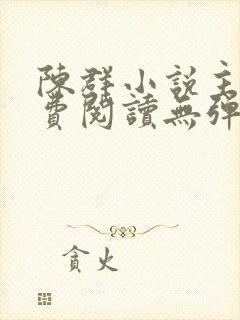 陳群小說主
費閱讀無彈
貪火